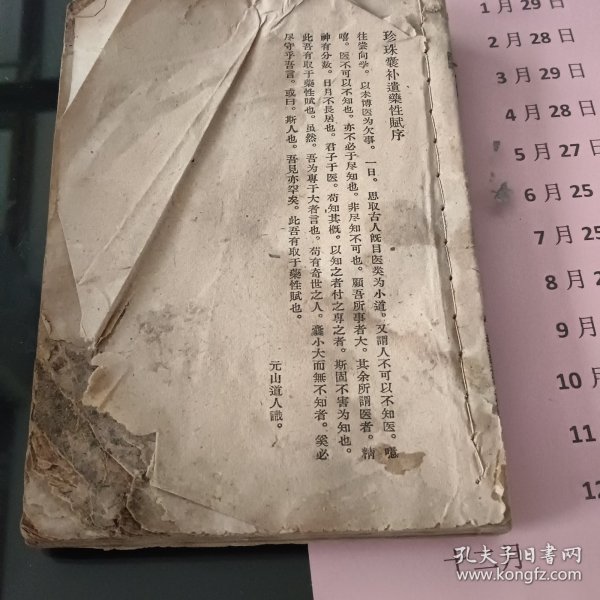 珍珠囊补遗藥性賦序
往嘗向学。以未博医为欠事。一日。思取古人既目医类为小道。又謂人不可以不知医。噫
嘻。医不可以不知也。亦不必于尽知也。非尽知不可也。顧吾所事者大。其余所謂医者。精
神有分数。日月不長居也。君子于医。苟知其概。以知之者付之專之者。斯固不害为知也。
此吾有取于藥性賦也。虽然。吾为專于大者言也。苟有奇世之人。囊小大而無不知者。奚必
尽守乎吾言。或曰。斯人也。吾見亦罕矣。此吾有取于藥性賦也。
元山道人識。
1月29日
2月28日
3月29日
4月28日
5月27日
6月25
7月25
8月2
9月
10月
11
12
十二月
孔夫子旧书网
www.kongfz.com